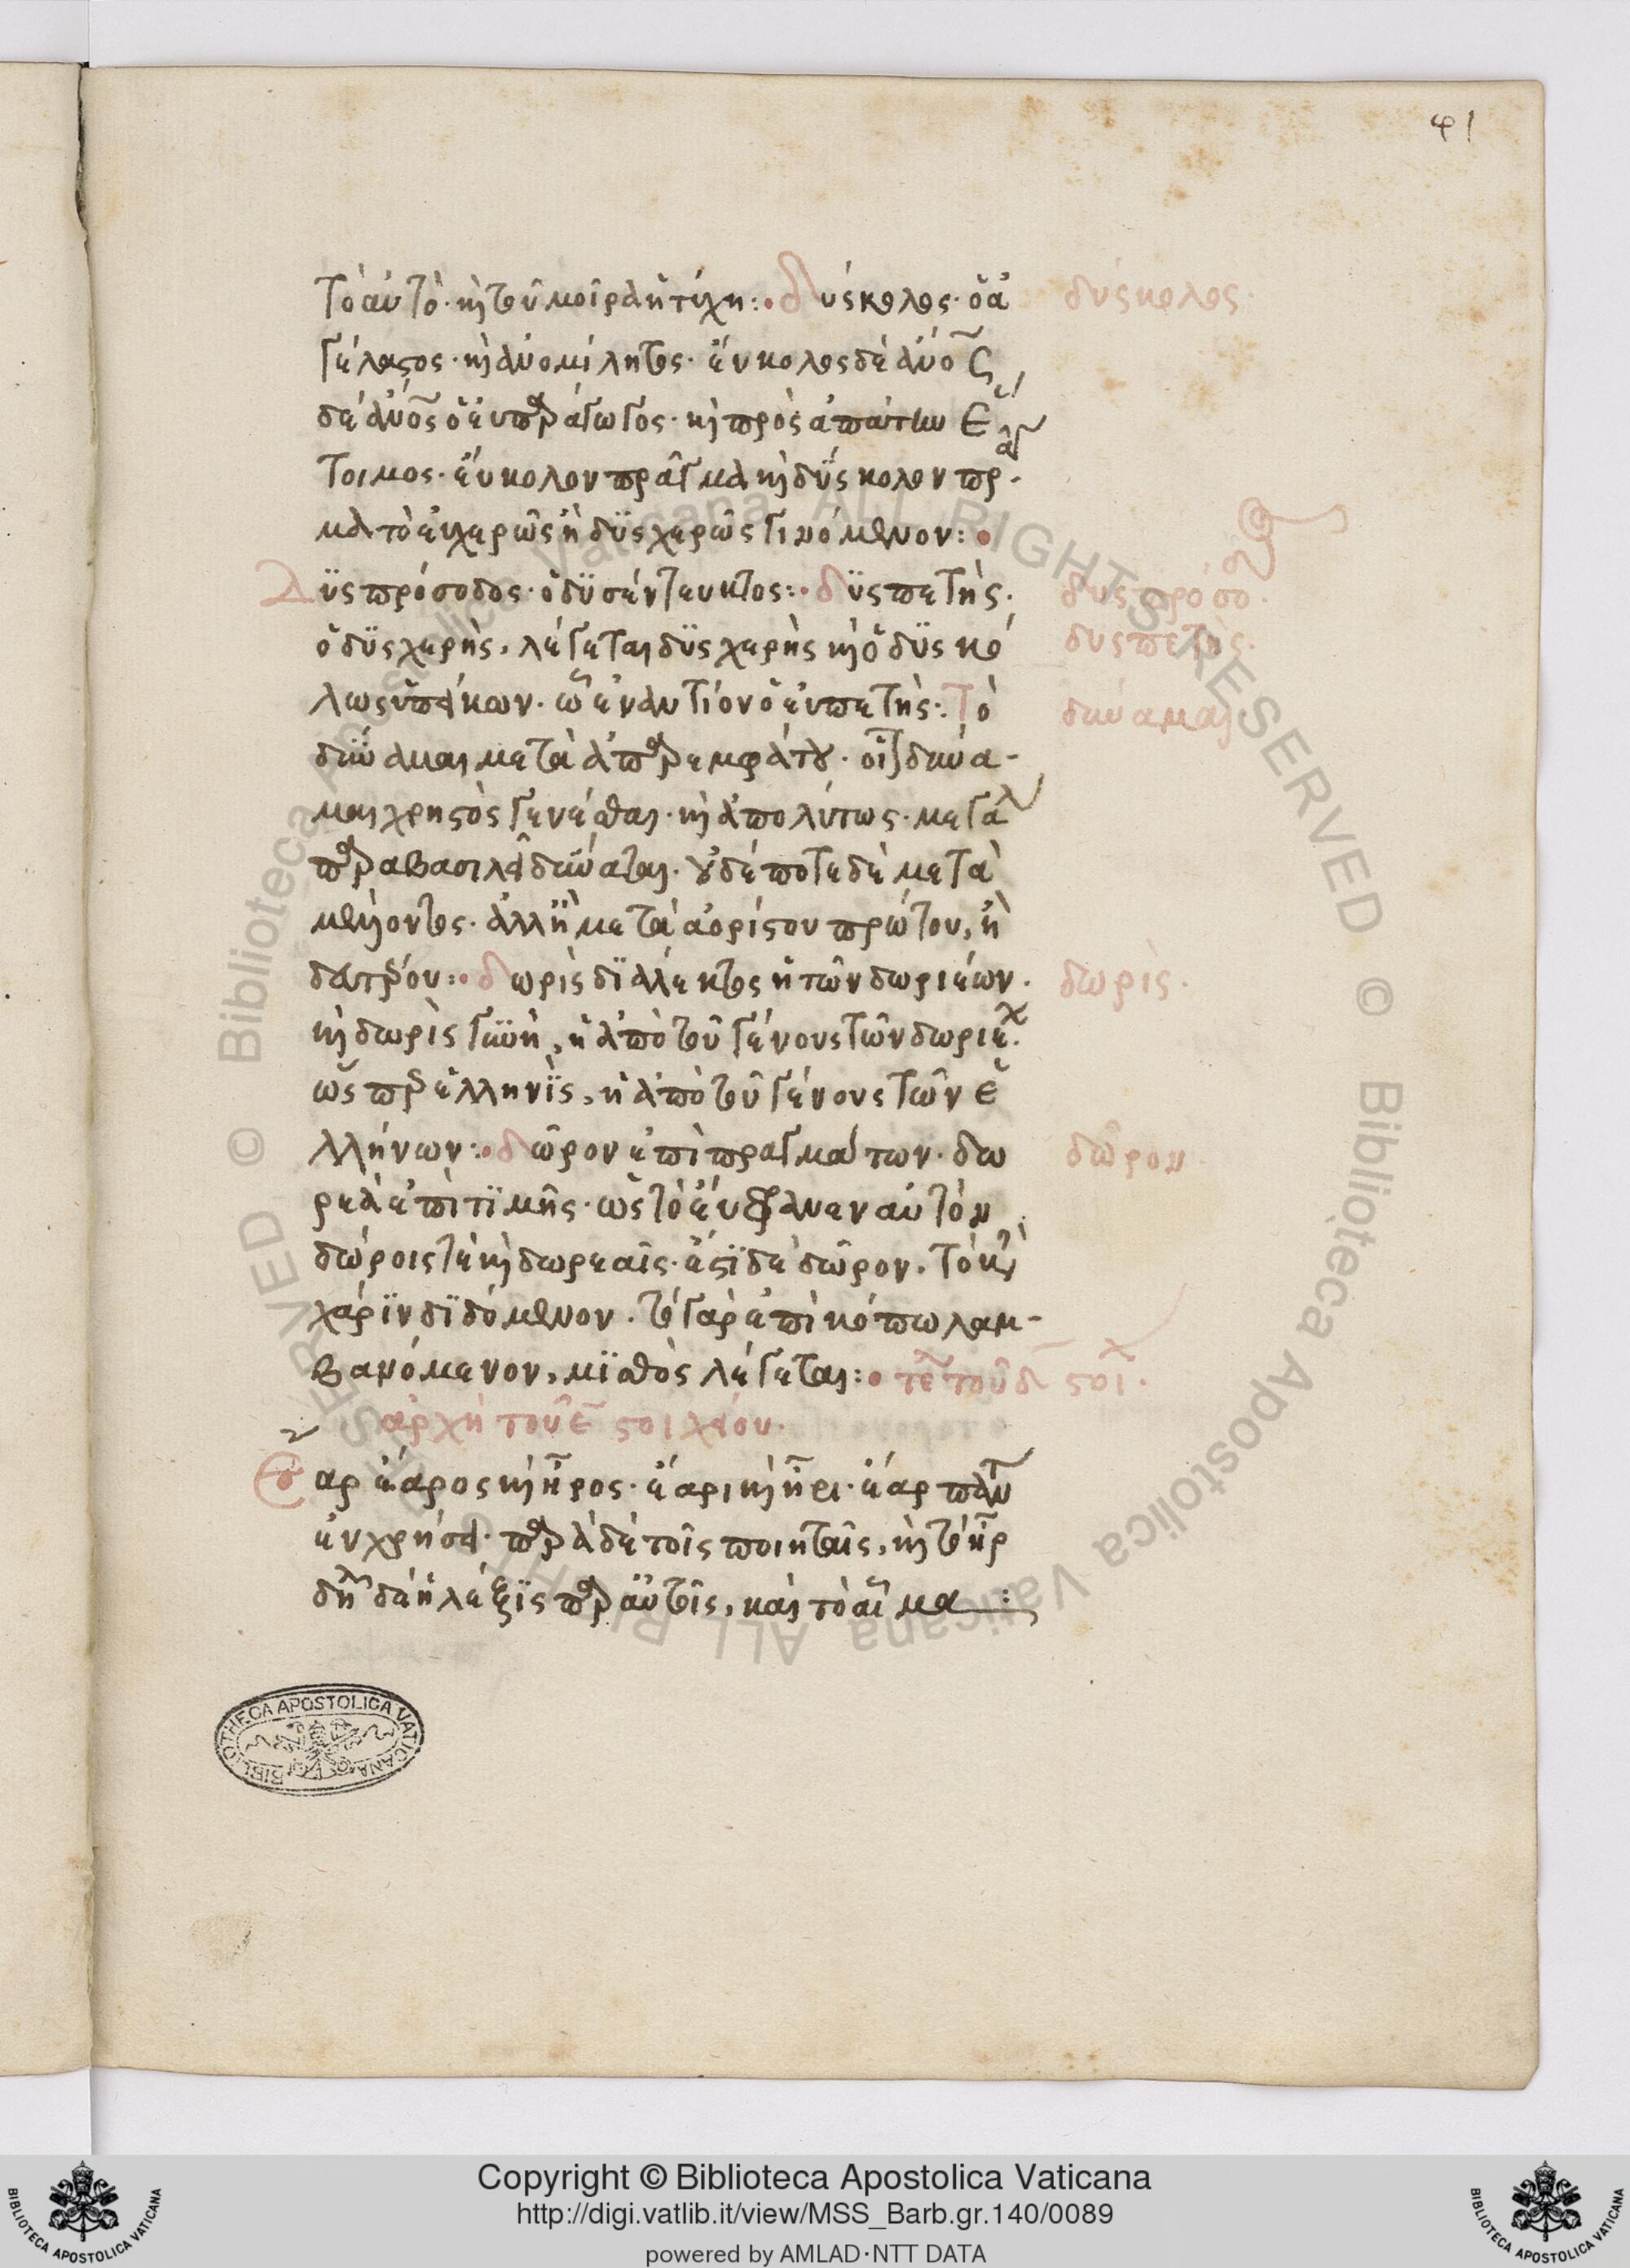 41
τὸ αὐτὸ· κὶ τοῦ μοῖρα ἡ τύχη:· δύσκολος· ὁ ἀ
γέλαστος· κὶ ἀνομίλητος· εὔκολος δὲ ἄνος
δὲ ἄνος ὁ εὐπαράγωγος· κὶ πρὸς ἀπάτην ἕ
τοιμος· εὔκολον πρᾶγμα κὶ δύσκολον πρᾶγ
μα τὸ εὐχερῶς ἢ δϋσχερῶς γινόμενον:·
Δϋσπρόσοδος· ὁ δϋσέντευκτος:· δϋσπετὴς·
ὁ δϋσχερὴς, λέγεται δϋσχερὴς κὶ ὁ δϋσκό
λως ὑπείκων· ὧ ἐναντίον ὁ εὐπετὴς: Τὸ
δύναμαι μετὰ ἀπαρεμφάτου· οἷον δύνα-
μαι χρηστὸς γενέσθαι· κὶ ἀπολύτως· μεγάλα
παρὰ βασιλεῖ δύναται· οὐδέποτε δὲ μετὰ
μέλλοντος· ἀλλ' ἢ μετὰ ἀορίστου πρώτου, ἢ
δευτέρου:· δωρὶς δϊάλεκτος ἡ τῶν δωριέων·
κὶ δωρὶς γυνὴ, ἡ ἀπὸ τοῦ γένους τῶν δωριέων·
ὥσπερ ἑλληνϊς, ἡ ἀπὸ τοῦ γένους τῶν ἑ
λλήνων:· δῶρον ἐπὶ πραγμάτων· δω
ρεὰ ἐπὶ τϊμῆς· ὡς τὸ εὔφρανεν αὐτὸν
δώροις τὲ κὶ δωρεαῖς· ἔστϊ δὲ δῶρον, τὸ κατὰ
χάρϊν δϊδόμενον· τὸ γὰρ ἐπὶ κόπω λαμ-
βανόμενον, μϊσθὸς λέγεται:· τέλος τοῦ δ στοιχ·
ἀρχὴ τοῦ ε στοιχείου·
Ἔαρ ἔαρος κὶ ἦρος· ἔαρι κὶ ἦρι· ἔαρ πάνυ
ἐν χρήσει· παρὰ δὲ τοῖς ποιηταῖς, κὶ τὸ ἦρ
δηλοῖ δὲ ἡ λέξϊς παρ' αὐτοῖς, καὶ τὸ αἷμα:
δύσκολος·
δυσπρόσοδος
δυσπετὴς·
δύναμαι
δωρὶς·
δῶρον·
BIBLIOTHECA APOSTOLICA VATICANA
© Biblioteca Apostolica Vaticana ALL RIGHTS RESERVED
Copyright © Biblioteca Apostolica Vaticana
http://digi.vatlib.it/view/MSS_Barb.gr.140/0089
powered by AMLAD·NTT DATA
BIBLIOTECA APOSTOLICA VATICANA
BIBLIOTECA APOSTOLICA VATICANA